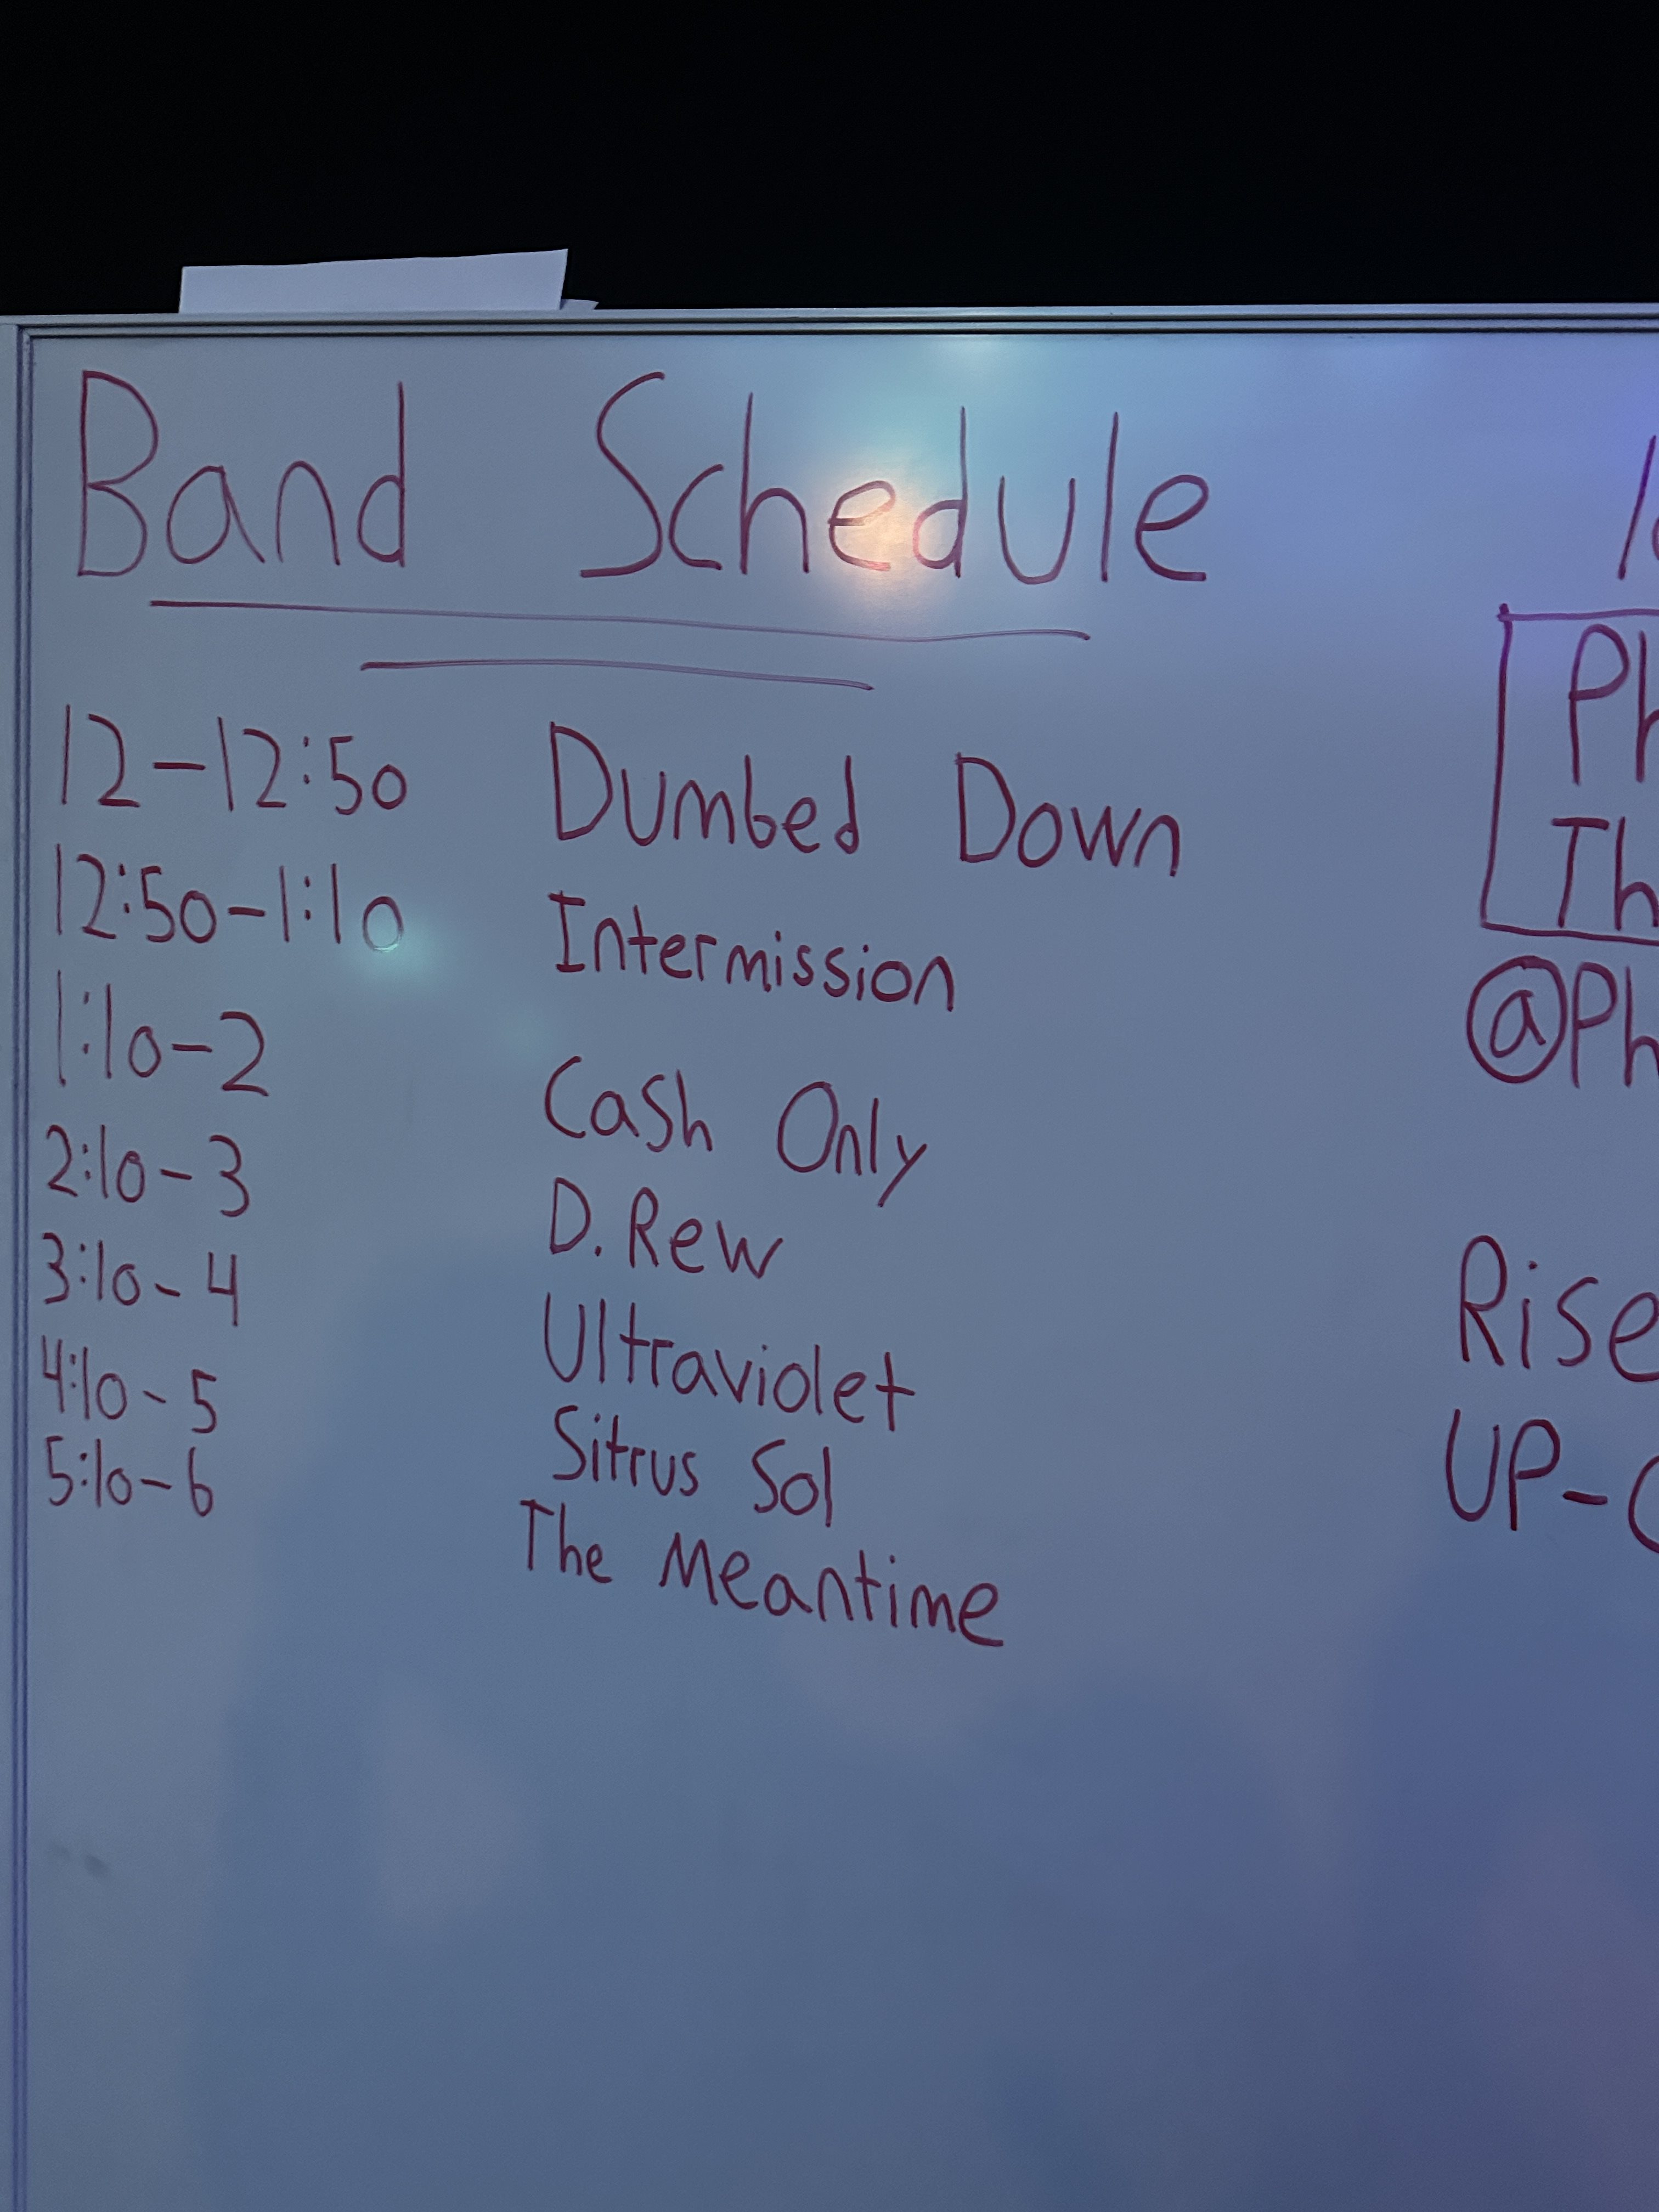 Band Schedule
12-12:50 Dumbed Down
12:50-1:10 Intermission
1:10-2 Cash Only
2:10-3 D. Rew
3:10-4 Ultraviolet
4:10-5 Sitrus Sol
5:10-6 The Meantime
Rise
UP-